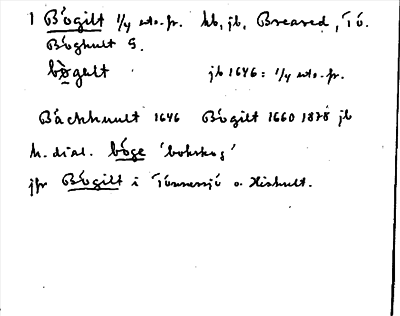 1 Bögilt 1/4 exto. fr. hb, jb, Breared, Tö.
Böghult S.
bögelt jb 1646: 1/4 exto. fr.
Bäckhuult 1646 Bögilt 1660 1878 jb
h. dial. böge 'bokskog'
jfr Bögilt i Tönnersjö o. Hishult.